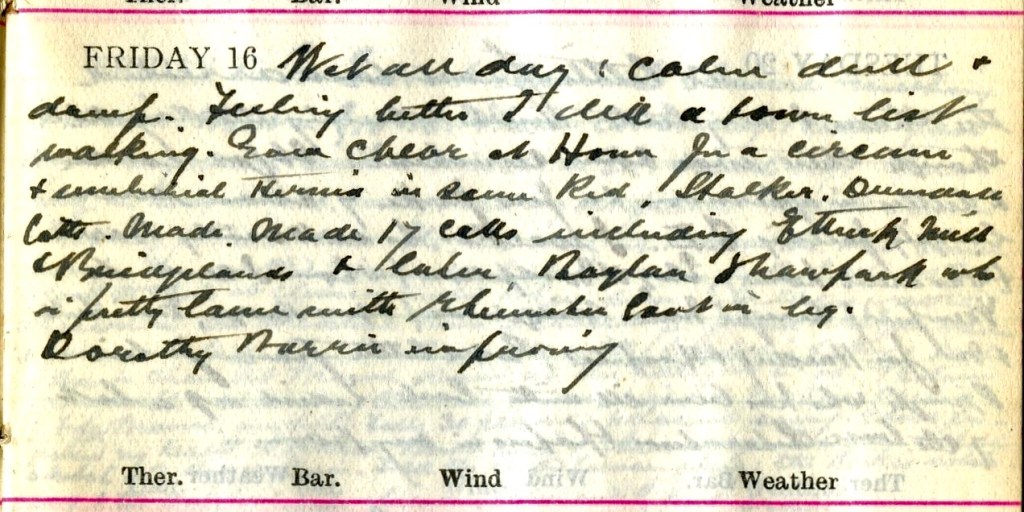 Ther. Bar. Wind Weather
FRIDAY 16 Wet all day, calm dull &
damp. Feeling better I did a town list
walking. Gave Chlor at Home for a circum
& umbilical Hernia in same Kid, Stalker, Dunsdale
Cotts. Made Made 17 calls including Ettrick Mill
& Bridgelands & later, Raylan Shawpark who
is pretty lame with Rheumatic Gout in leg.
Dorothy improving
Ther. Bar. Wind Weather